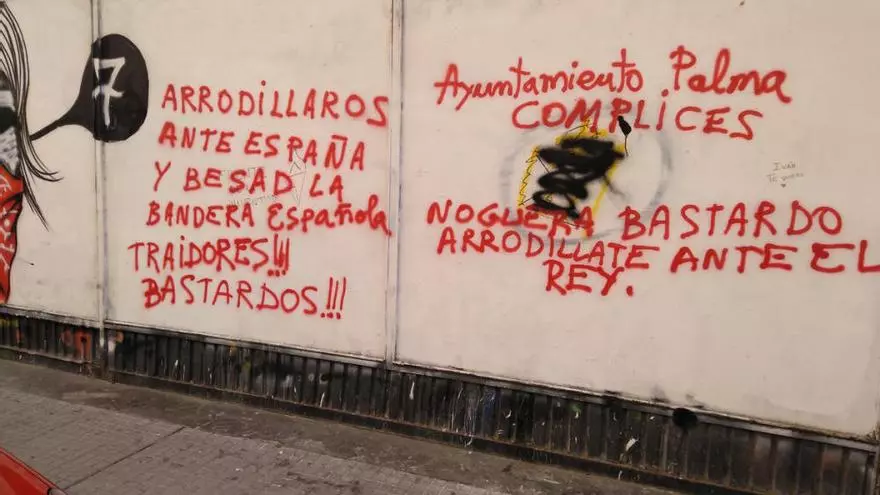 7
ARRODILLAROS
ANTE ESPAÑA
Y BESAD LA
BANDERA Española
TRAIDORES!!!
BASTARDOS!!!
Ayuntamiento Palma
COMPLICES
NOGUERA BASTARDO
ARRODILLATE ANTE EL
REY.
Iván
Te